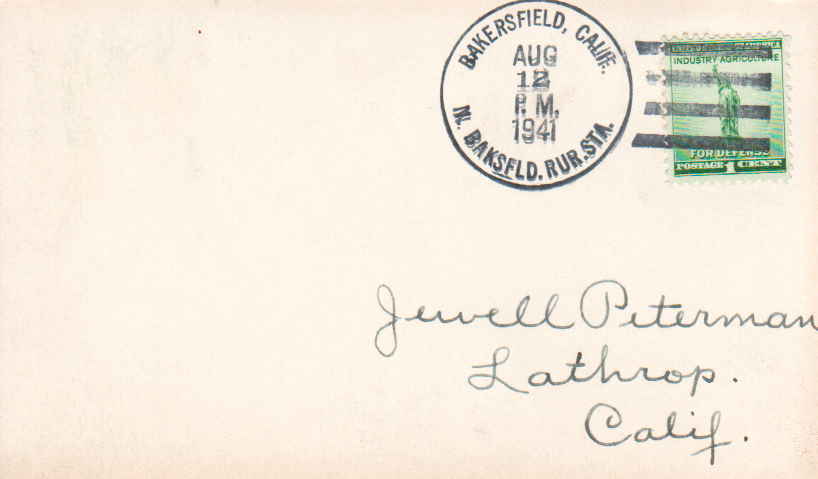 BAKERSFIELD, CALIF.
AUG
12
P.M.
1941
N. BAKSFLD. RUR. STA.
INDUSTRY AGRICULTURE
FOR DEFENSE
POSTAGE 1 CENT
Jewell Peterman
Lathrop.
Calif.